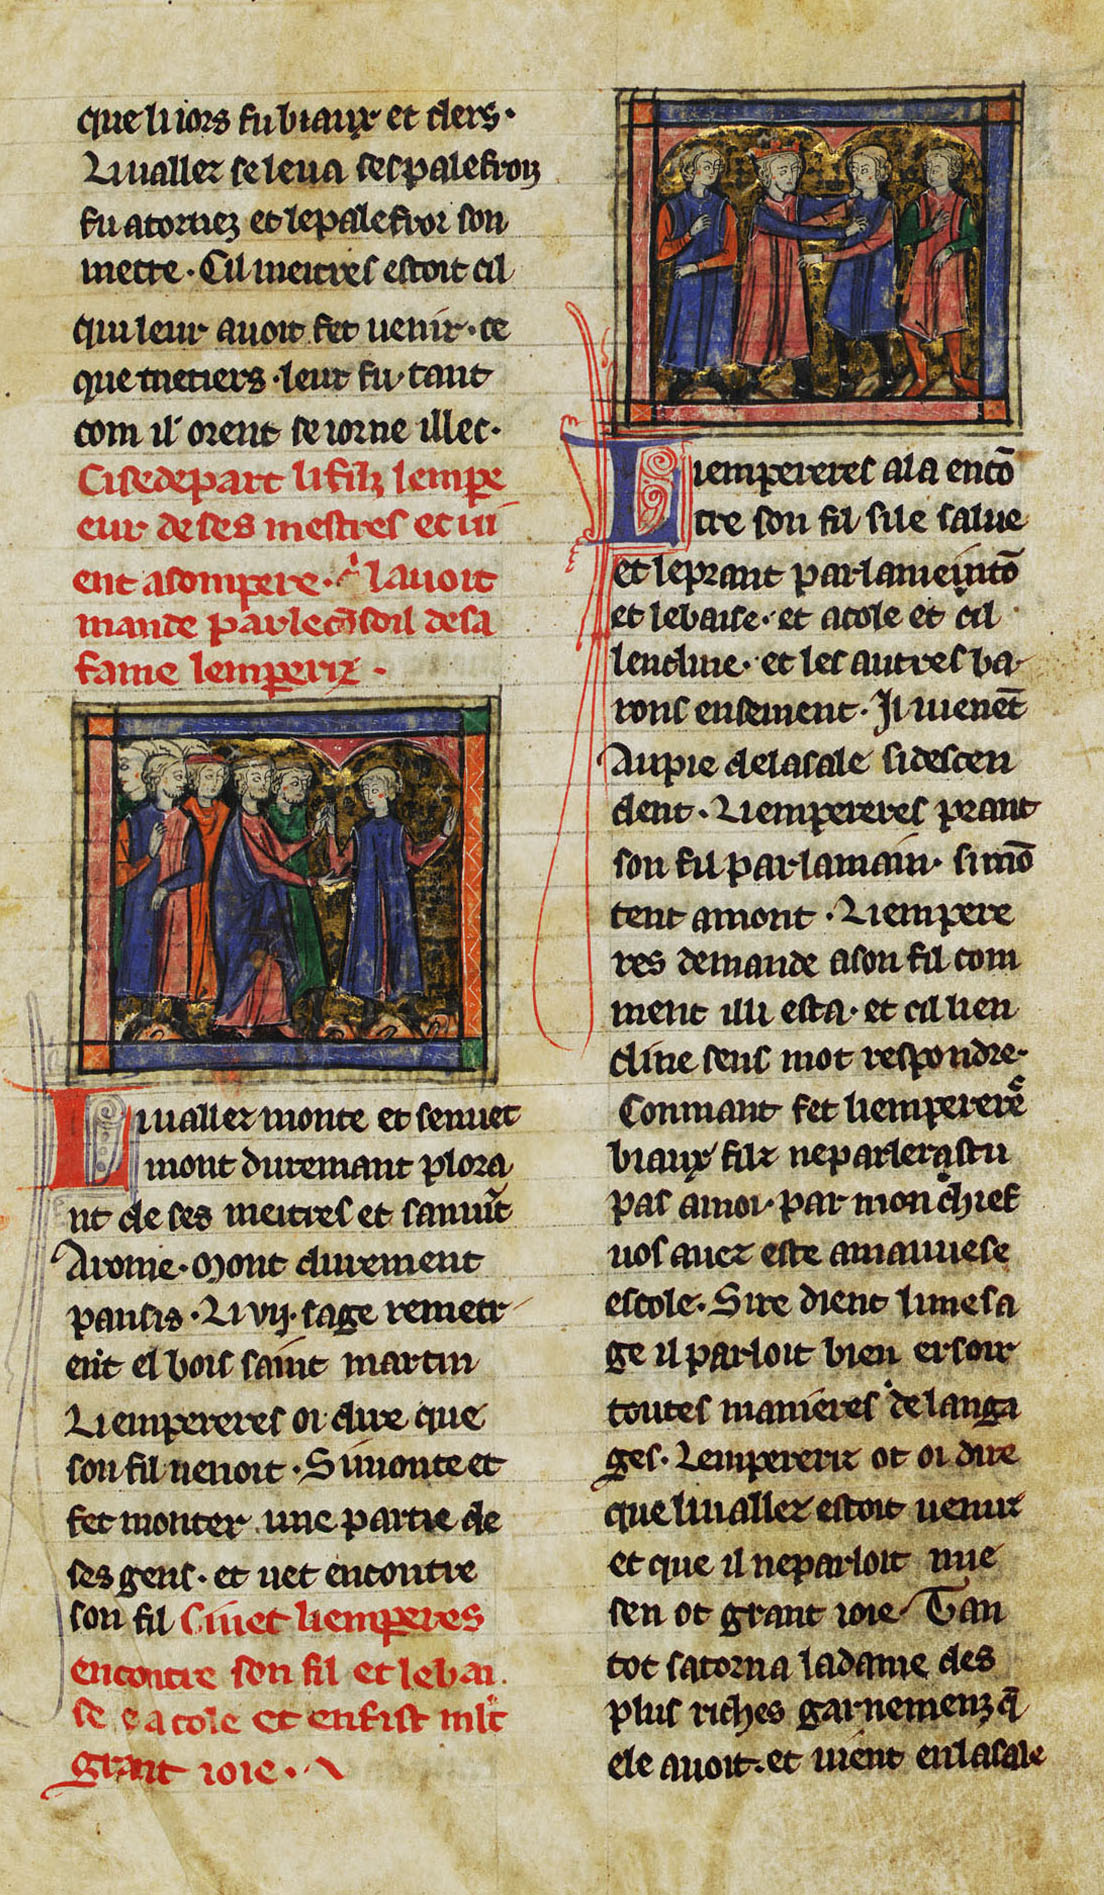 que li iors fu biaux et clers·
Li uallez se leua ses palefroiz
fu atornez et le palefroi son
metre· Cil meitres estoit cil
qui leur auoit fet uenir· ce
que metiers· leur fu· tant
com il orent seiorne illec·
Ci se depart li filz lempe
eur de ses mestres et ui
ent a son pere· q̾ lauoit
mande par le cōsoil de sa
fame lemperiz·
Li uallez monte et sen uet
mont duremant plora
nt de ses meitres et san uīt
A rome· Mont durement
pansis· Li vij· sage remetr
ent el bois saint martin
Li empereres oi dire que
son fil uenoit· Si monte et
fet monter une partie de
ses gens· et uet encontre
son fil Ci uet li emperes
encontre son fil et le bai
se e acole et en fist mlt̄
grant ioie·
Li empereres ala encō
tre son fil si le salue
et le prant par la meintō
et le baise· et acole et cil
lencline· et les autres ba
rons ensement· Il uienēt
Au pie de la sale si descen
dent· Li empereres prant
son fil par la main· si mō
tent amont· Li empere
res demande a son fil com
ment illi esta· et cil lien
cline sens mot respondre·
Conmant fet li emperere
biaux filz ne parleras tu
pas a moi· par mon chief
uos auez este a mauuese
escole· Sire dient li mesa
ge il parloit bien ersoir
toutes manieres de langa
ges· Lempereriz ot oi dire
que li uallez estoit uenuz
et que il ne parloit mie
sen ot grant ioie Tan
tot satorna la dame des
plus riches garnemenz q̄
ele auoit· et uient en la sale